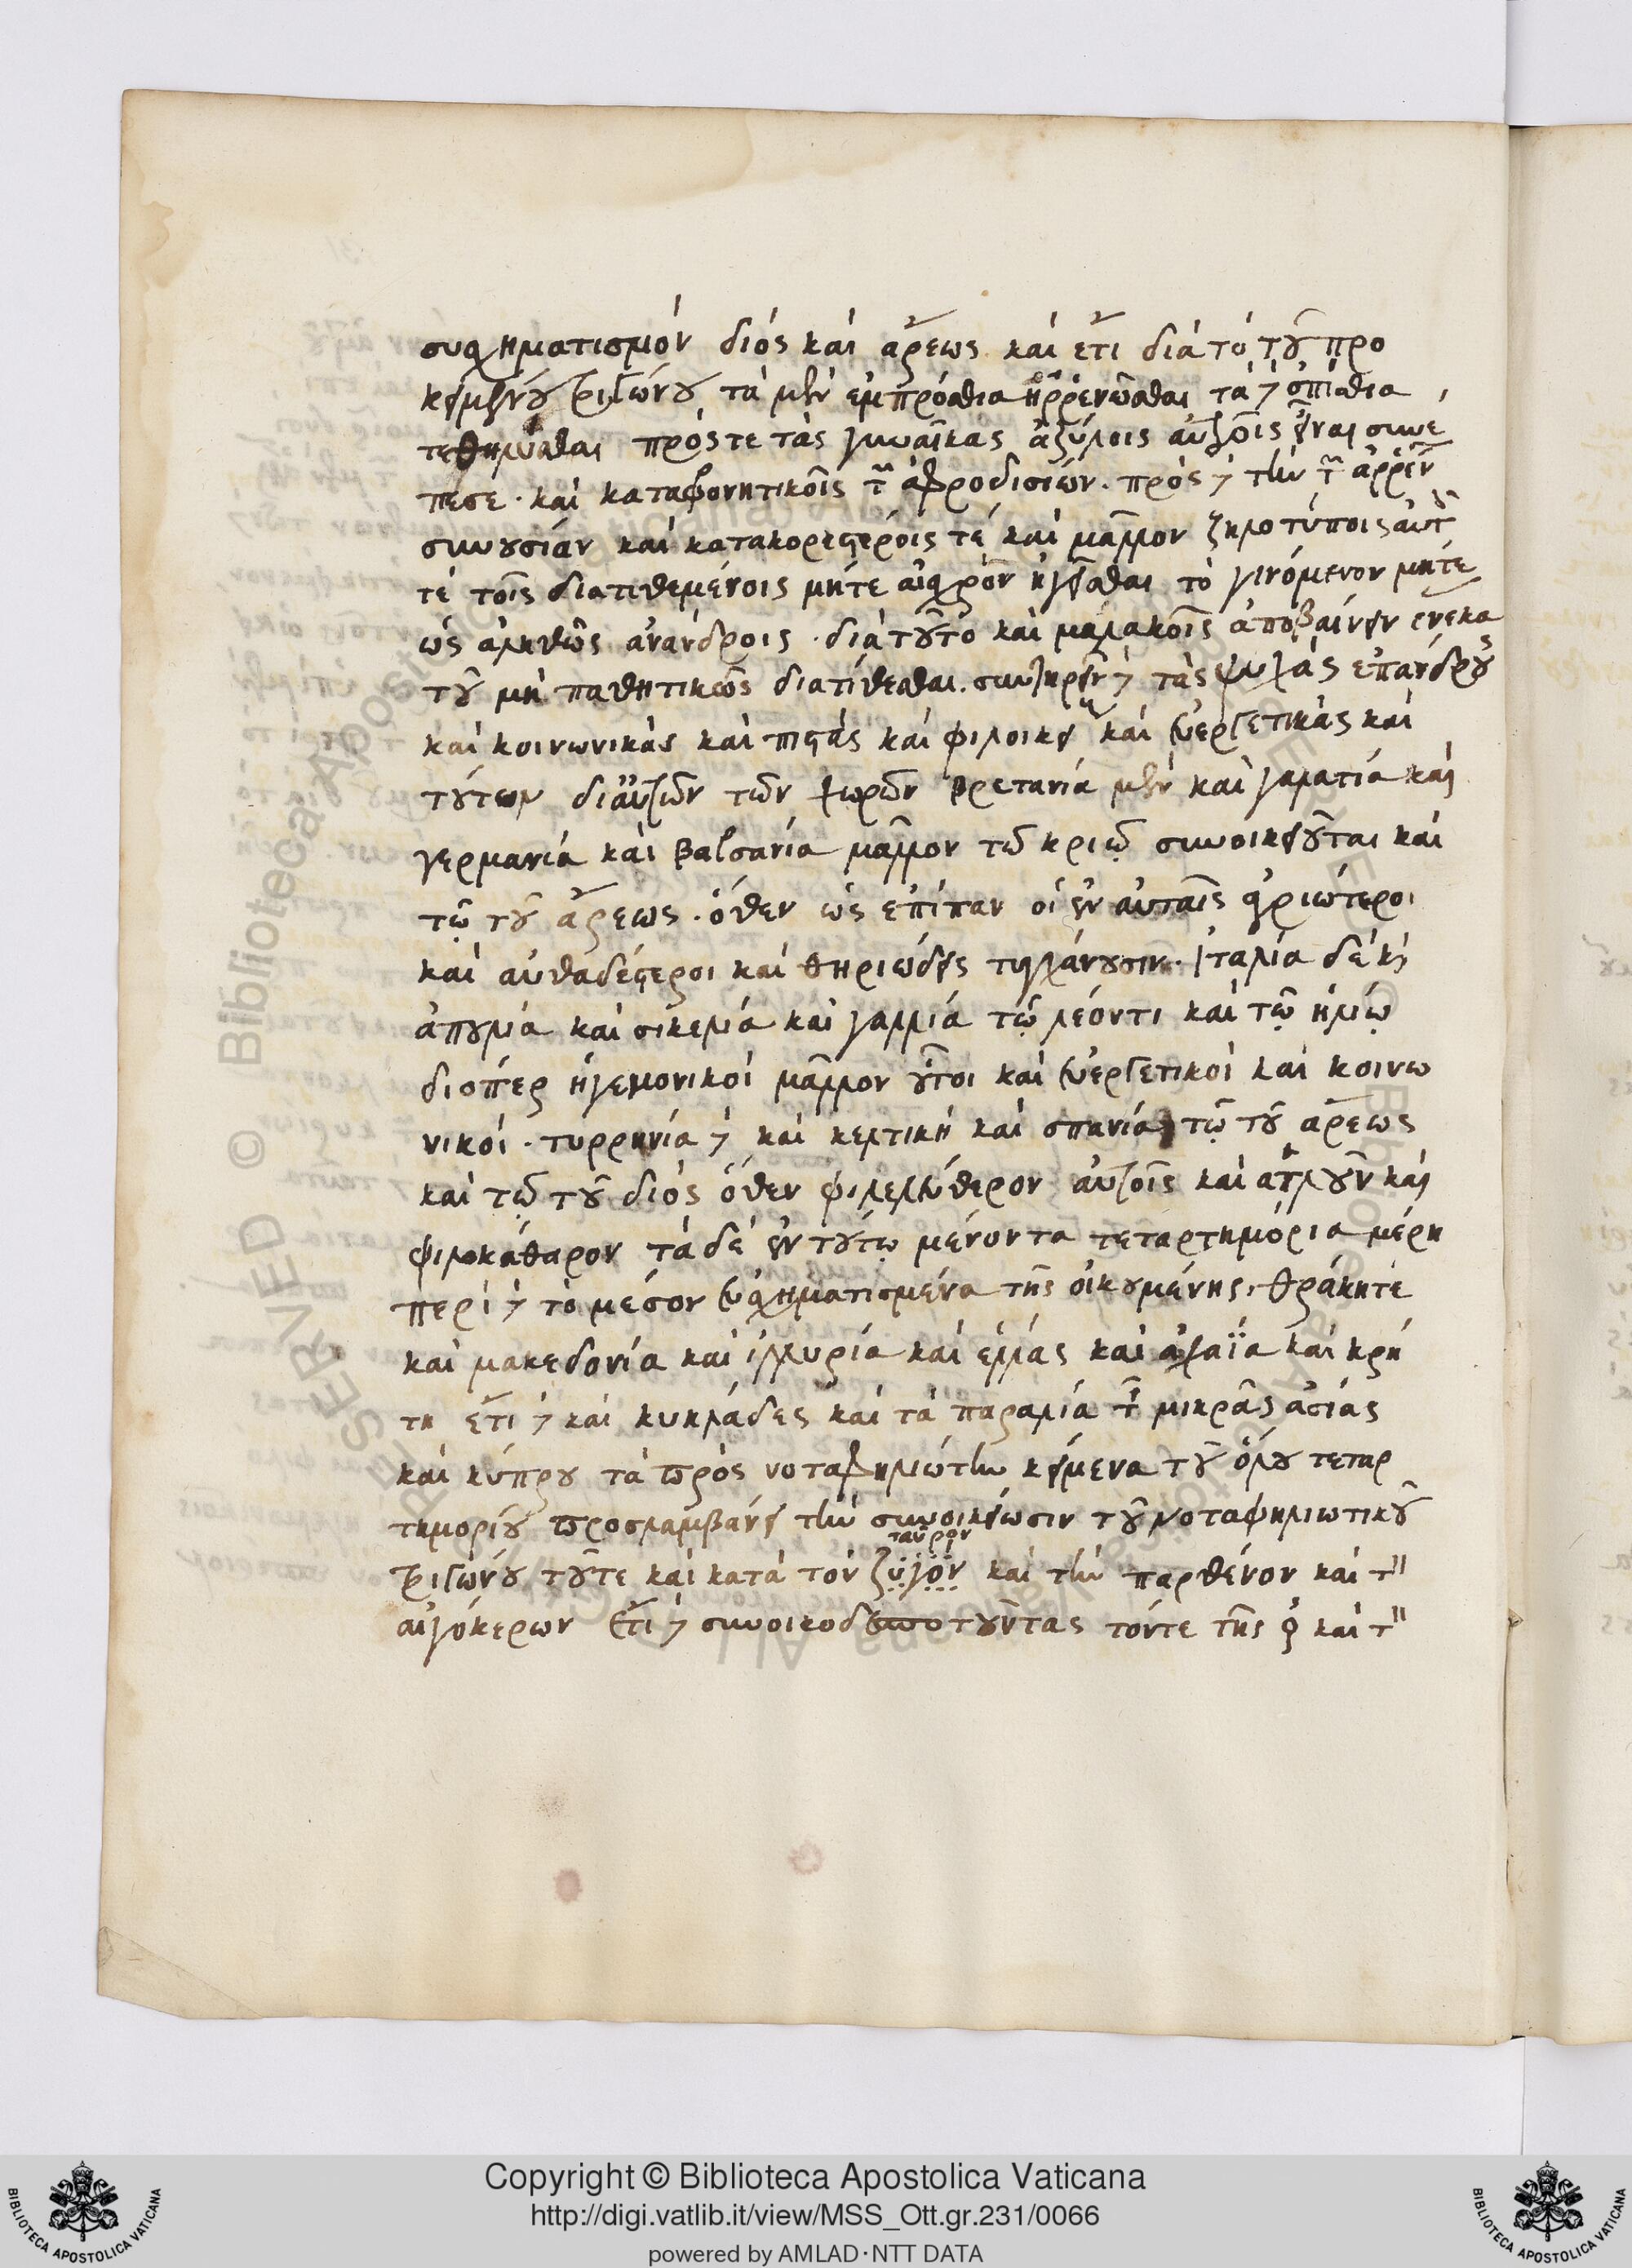 συσχηματισμὸν διὸς καὶ ἄρεως καὶ ἔτι διὰ τὸ τοῦ προ
κειμένου τριγώνου τὰ μὲν ἐμπρόσθια ἠρρενῶσθαι τὰ δὲ ὀπίσθια
τεθηλύσθαι πρός τε τὰς γυναῖκας ἀζήλοις αὐτοῖς εἶναι συνέ
πεσε. καὶ καταφρονητικοῖς τῶν ἀφροδισίων. πρὸς δὲ τὴν τῶν ἀρρένων
συνουσίαν καὶ κατακορεστέροις τέ καὶ μᾶλλον ζηλοτύποις αὐτοῖς
τέ τοῖς διατιθεμένοις μήτε αἰσχρὸν ἡγεῖσθαι τὸ γινόμενον μήτε
ὡς ἀληθῶς ἀνάνδροις. διὰ τοῦτο καὶ μαλακοῖς ἀποβαίνειν ἕνεκα
τοῦ μὴ παθητικῶς διατίθεσθαι. συντηρεῖν δὲ τὰς ψυχὰς ἐπάνδρους
καὶ κοινωνικὰς καὶ πιστὰς καὶ φιλοικείους καὶ εὐεργετικὰς καὶ
τούτων δὲ αὐτῶν τῶν χωρῶν βρετανία μὲν καὶ γαλατία καὶ
γερμανία καὶ βαρσανία μᾶλλον τῷ κριῷ συνοικειοῦται καὶ
τῷ τοῦ ἄρεως. ὅθεν ὡς ἐπίπαν οἱ ἐν αὐταῖς ἀγριώτεροι
καὶ αὐθαδέστεροι καὶ θηριώδεις τυγχάνουσιν. ἰταλία δὲ καὶ
ἀπουλία καὶ σικελία καὶ γαλλία τῷ λέοντι καὶ τῷ ἡλίῳ
διόπερ ἡγεμονικοὶ μᾶλλον οὗτοι καὶ εὐεργετικοὶ καὶ κοινω
νικοί. τυρρηνία δὲ καὶ κελτικὴ καὶ σπανία τῷ τοῦ ἄρεως
καὶ τῷ τοῦ διὸς ὅθεν φιλελεύθερον αὐτοῖς καὶ ἁπλοῦν καὶ
φιλοκάθαρον τὰ δὲ ἐν τούτῳ μένοντα τεταρτημόρια μέρη
περὶ δὲ τὸ μέσον ἐσχηματισμένα τῆς οἰκουμένης, θράκη τε
καὶ μακεδονία καὶ ἰλλυρία καὶ ἑλλὰς καὶ ἀχαΐα καὶ κρή
τη ἔτι δὲ καὶ κυκλάδες καὶ τὰ παράλια τῆς μικρᾶς ἀσίας
καὶ κύπρου τὰ πρὸς νοταφηλιώτην κείμενα τοῦ ὅλου τεταρ
τημορίου προσλαμβάνει τὴν συνοικείωσιν τοῦ νοταφηλιωτικοῦ
ταῦρον
τριγώνου τοῦ τε καὶ κατὰ τὸν ζυγὸν καὶ τὴν παρθένον καὶ τὸν
αἰγόκερων ἔτι δὲ συνοικοδεσποτοῦντας τόν τε τῆς ♀ καὶ τὸν